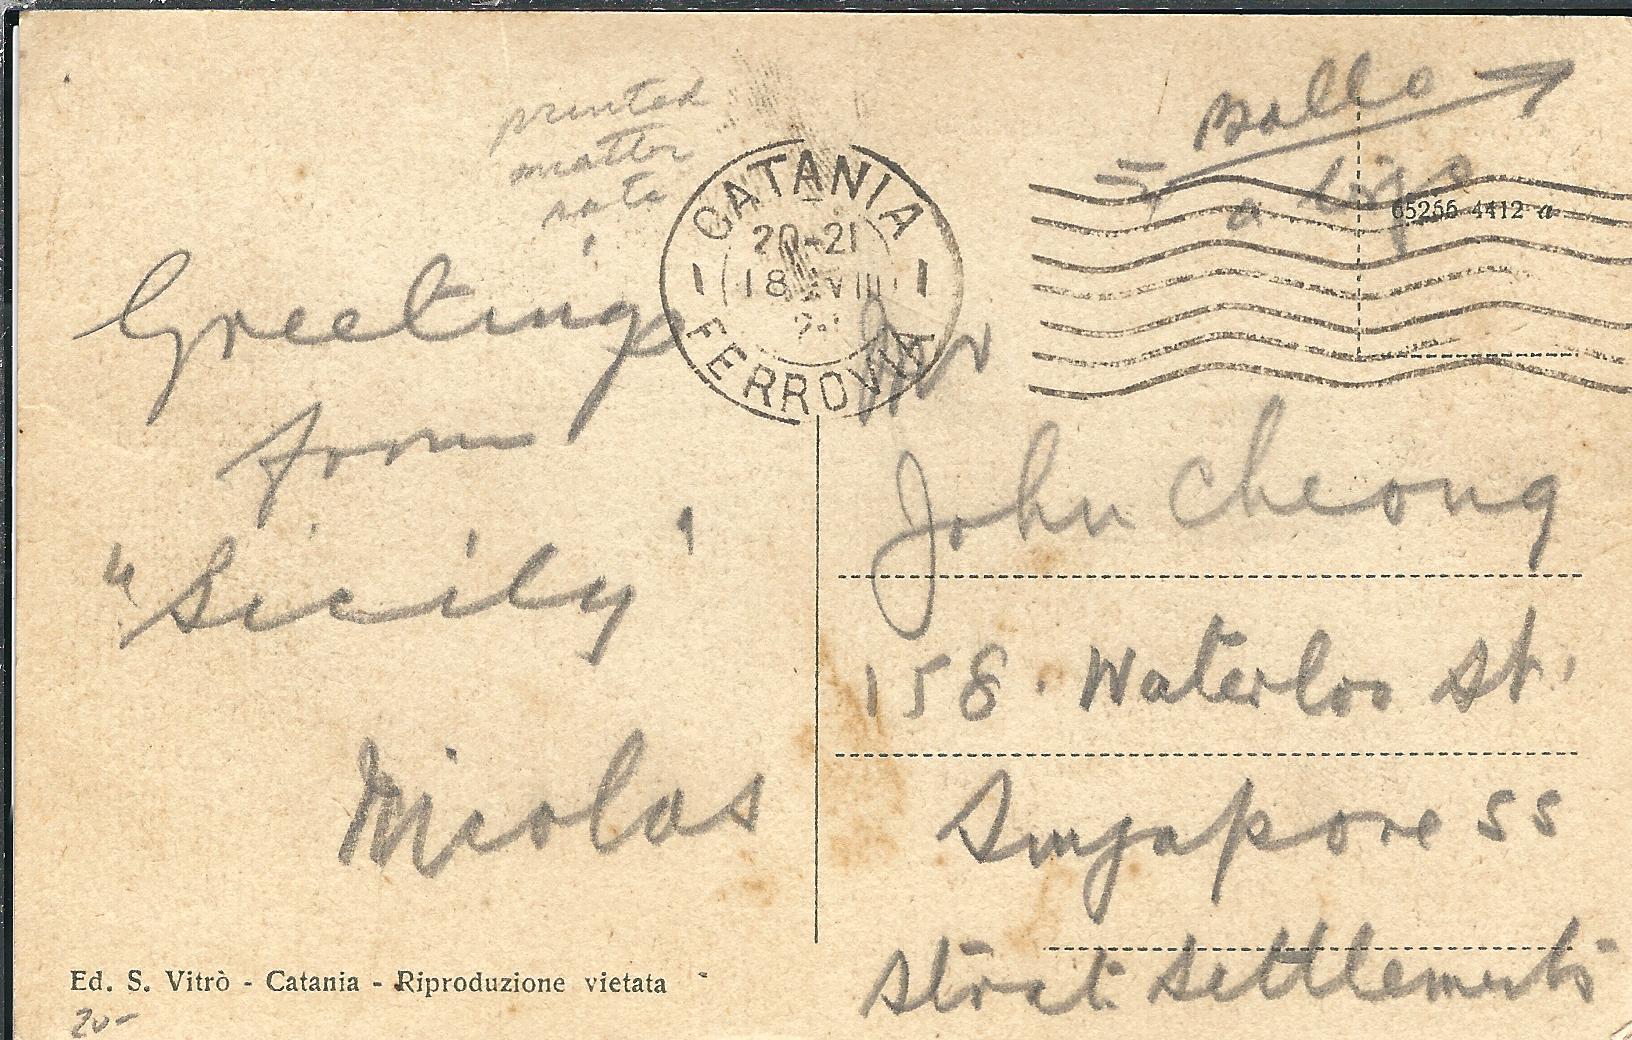 printed
matter
rate
Greetings
from
"Sicily"
Nicolas
Ed. S. Vitrò - Catania - Riproduzione vietata
20-
CATANIA
20-21
18 VIII
FERROVIA
65266 4412 a
John Cheong
158. Waterloo St.
Singapore SS
Strait Settlements